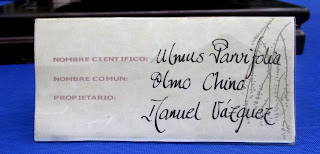 NOMBRE CIENTIFICO: Ulmus Parvifolia
NOMBRE COMUN: Olmo Chino
PROPIETARIO: Manuel Vázquez